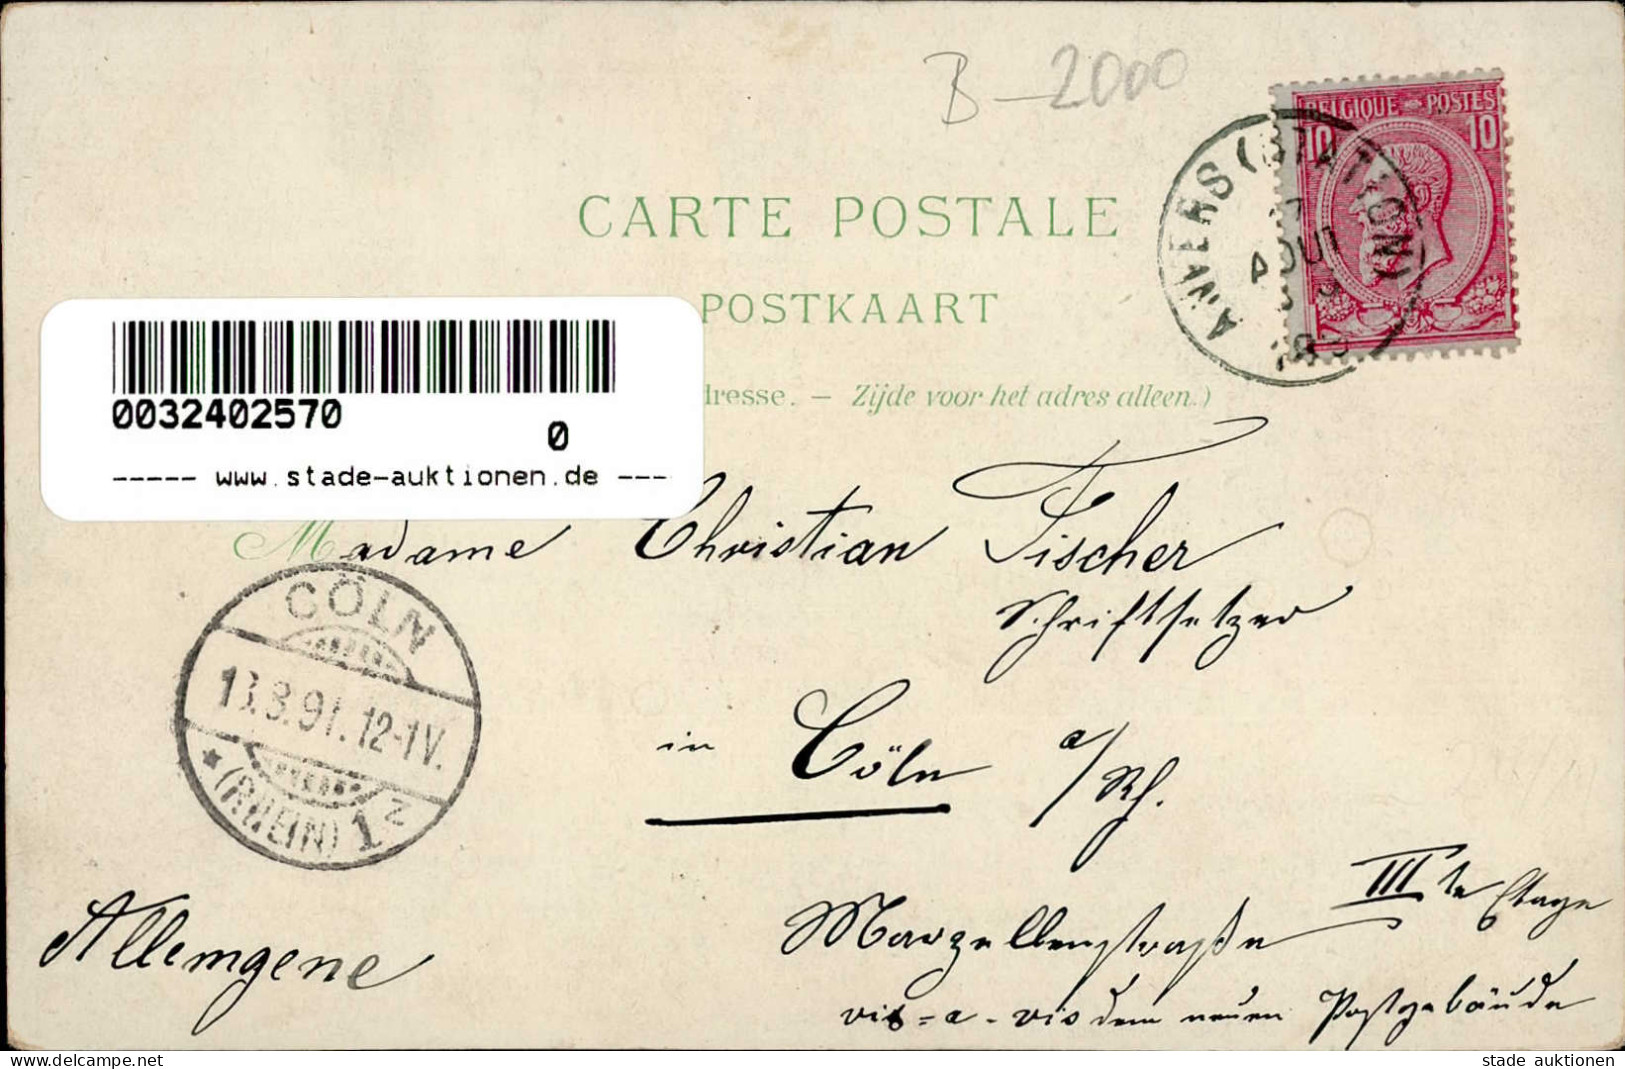 B-2000
BELGIQUE POSTES
10 10
ANVERS (STATION)
AOUT
CARTE POSTALE
POSTKAART
dresse. — Zijde voor het adres alleen.)
0032402570
0
----- www.stade-auktionen.de ---
Madame Christian Fischer
Schriftsetzer
CÖLN
13.8.91. 12-1V.
* (RHEIN) 1 z
in Cöln a/Rh.
IIIte Etage
Marzellenstraße
Allemgene
vis=a-vis dem neuen Postgebäude
stade auktionen